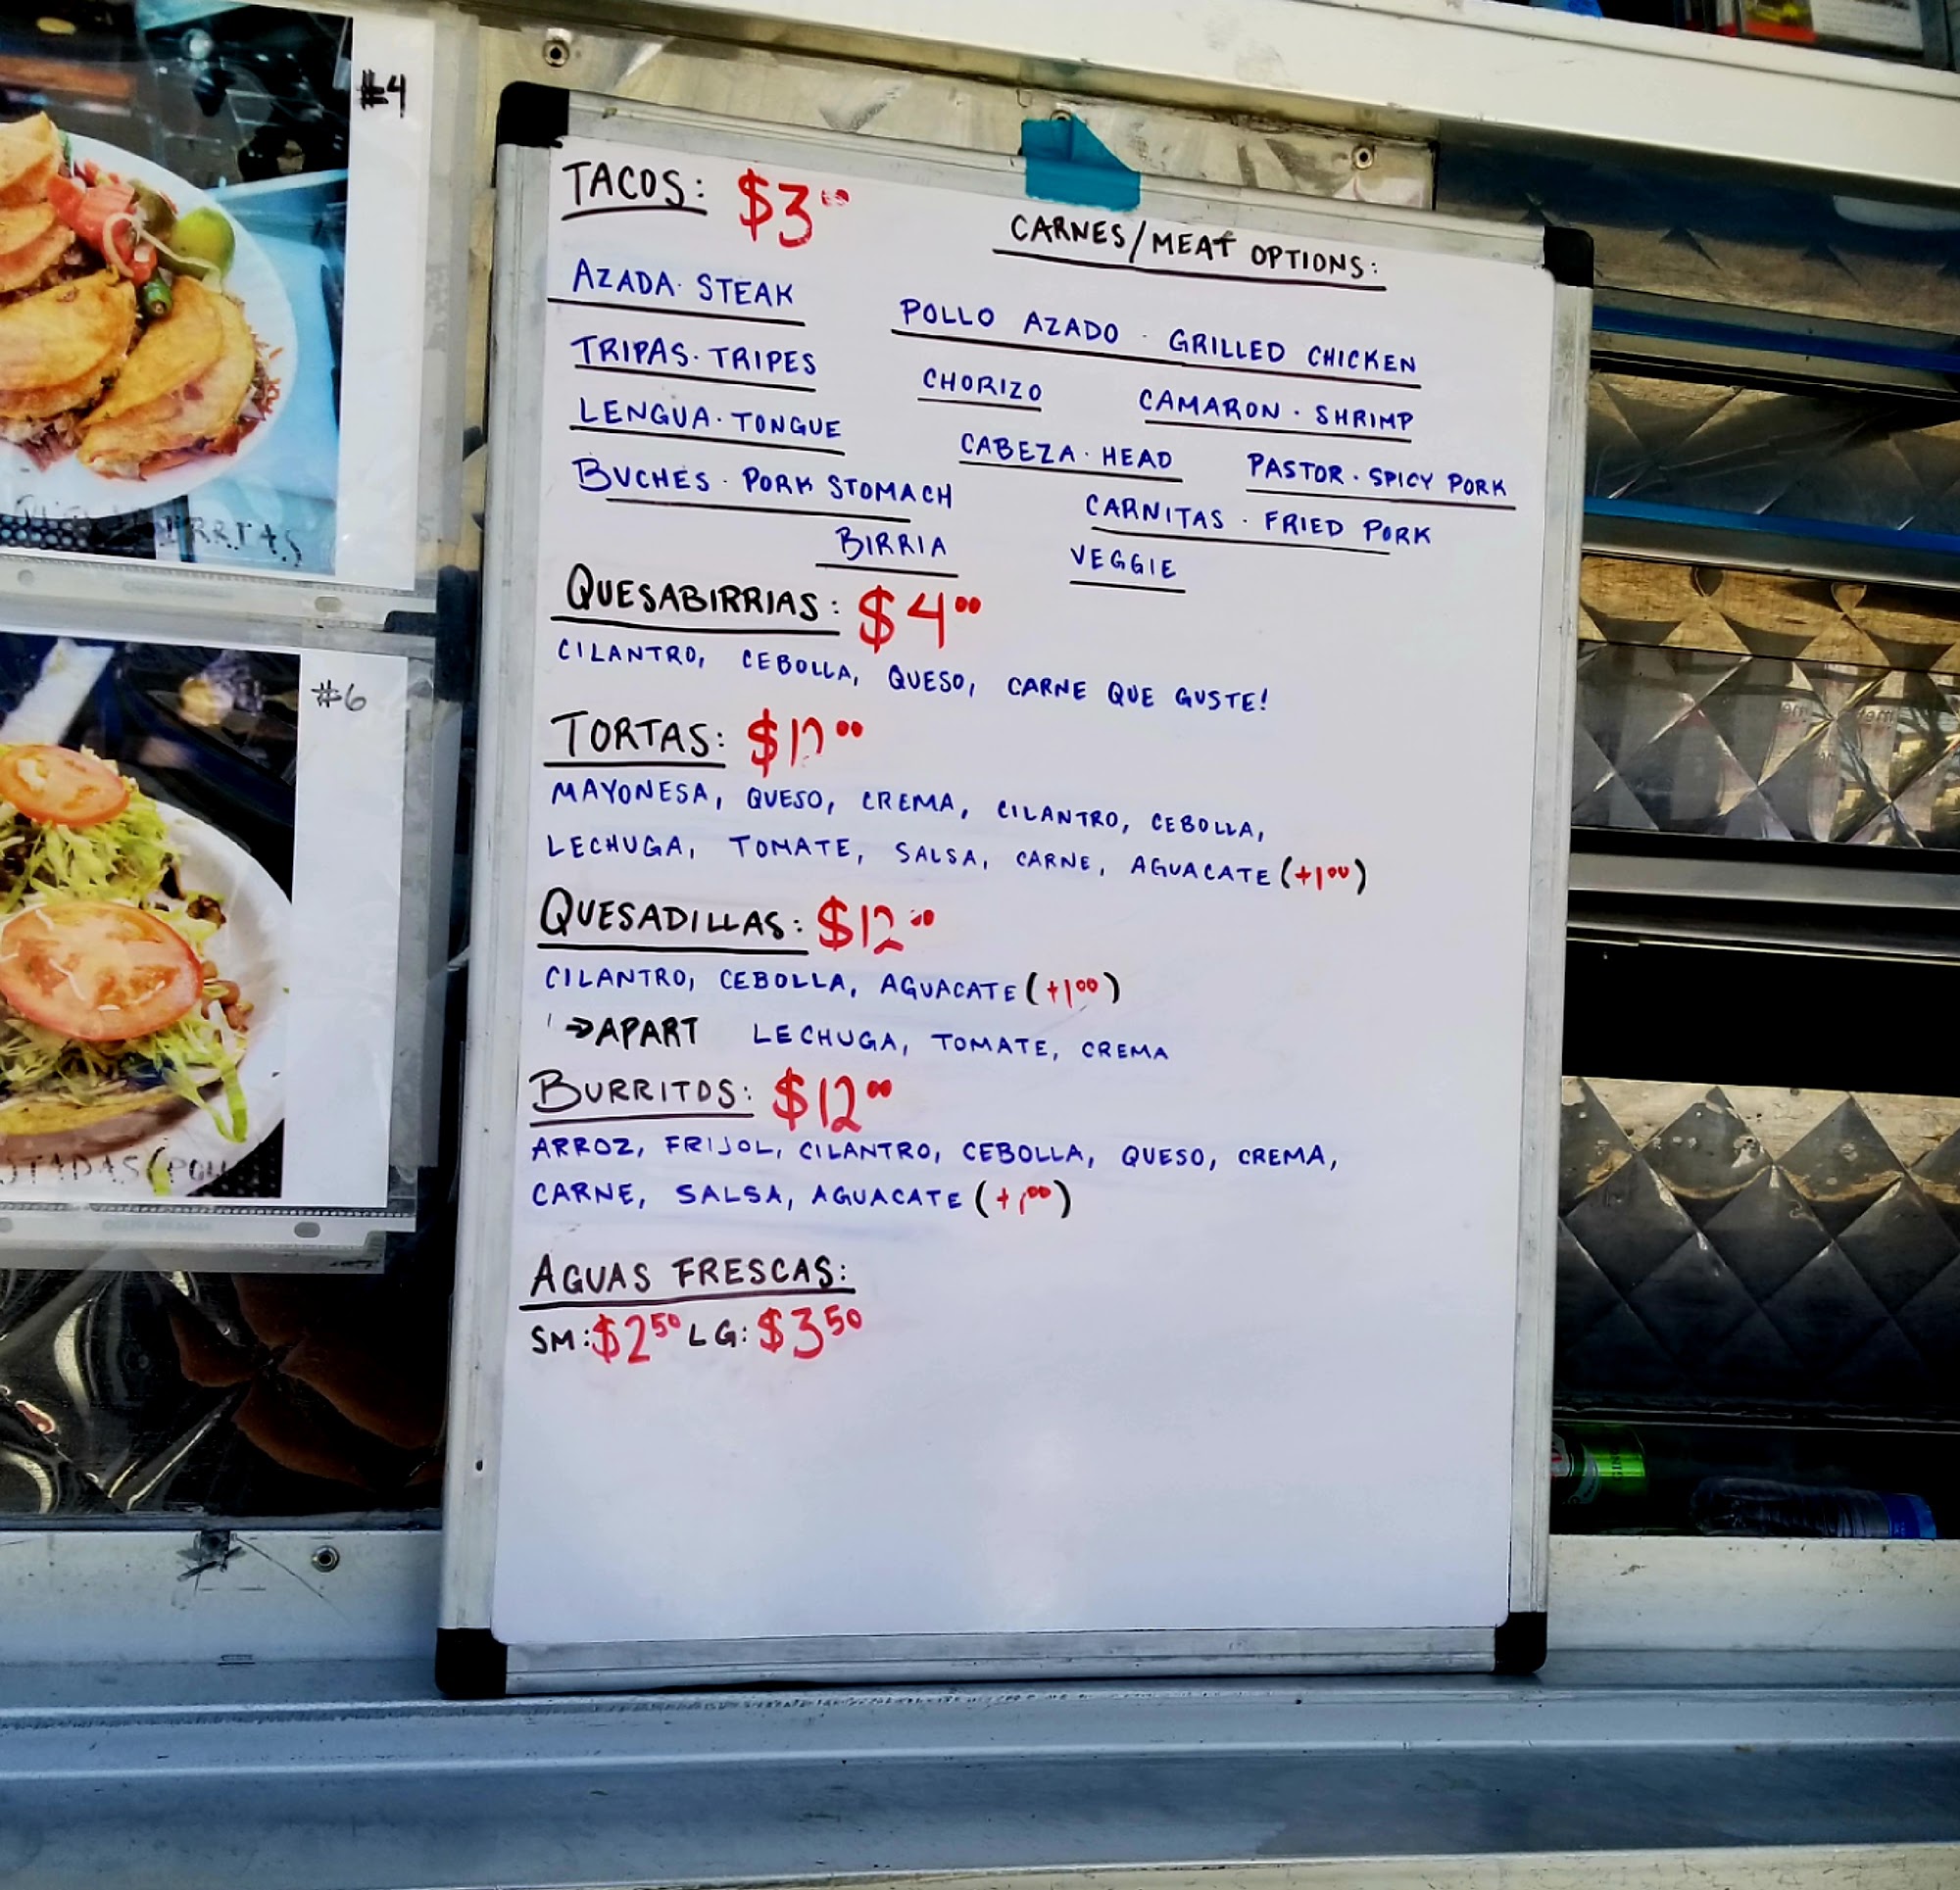 #4
TACOS: $3⁰⁰
CARNES/MEAT OPTIONS:
AZADA · STEAK
POLLO AZADO · GRILLED CHICKEN
TRIPAS · TRIPES
CHORIZO
CAMARON · SHRIMP
LENGUA · TONGUE
CABEZA · HEAD
PASTOR · SPICY PORK
BUCHES · PORK STOMACH
CARNITAS · FRIED PORK
BIRRIA
VEGGIE
QUESABIRRIAS: $4⁰⁰
CILANTRO, CEBOLLA, QUESO, CARNE QUE GUSTE!
#6
TORTAS:
MAYONESA, QUESO, CREMA, CILANTRO, CEBOLLA,
LECHUGA, TOMATE, SALSA, CARNE, AGUACATE (+1⁰⁰)
QUESADILLAS: $12⁰⁰
CILANTRO, CEBOLLA, AGUACATE (+1⁰⁰)
→APART LECHUGA, TOMATE, CREMA
BURRITOS: $12⁰⁰
ARROZ, FRIJOL, CILANTRO, CEBOLLA, QUESO, CREMA,
CARNE, SALSA, AGUACATE (+1⁰⁰)
AGUAS FRESCAS:
SM: $2⁵⁰ LG: $3⁵⁰